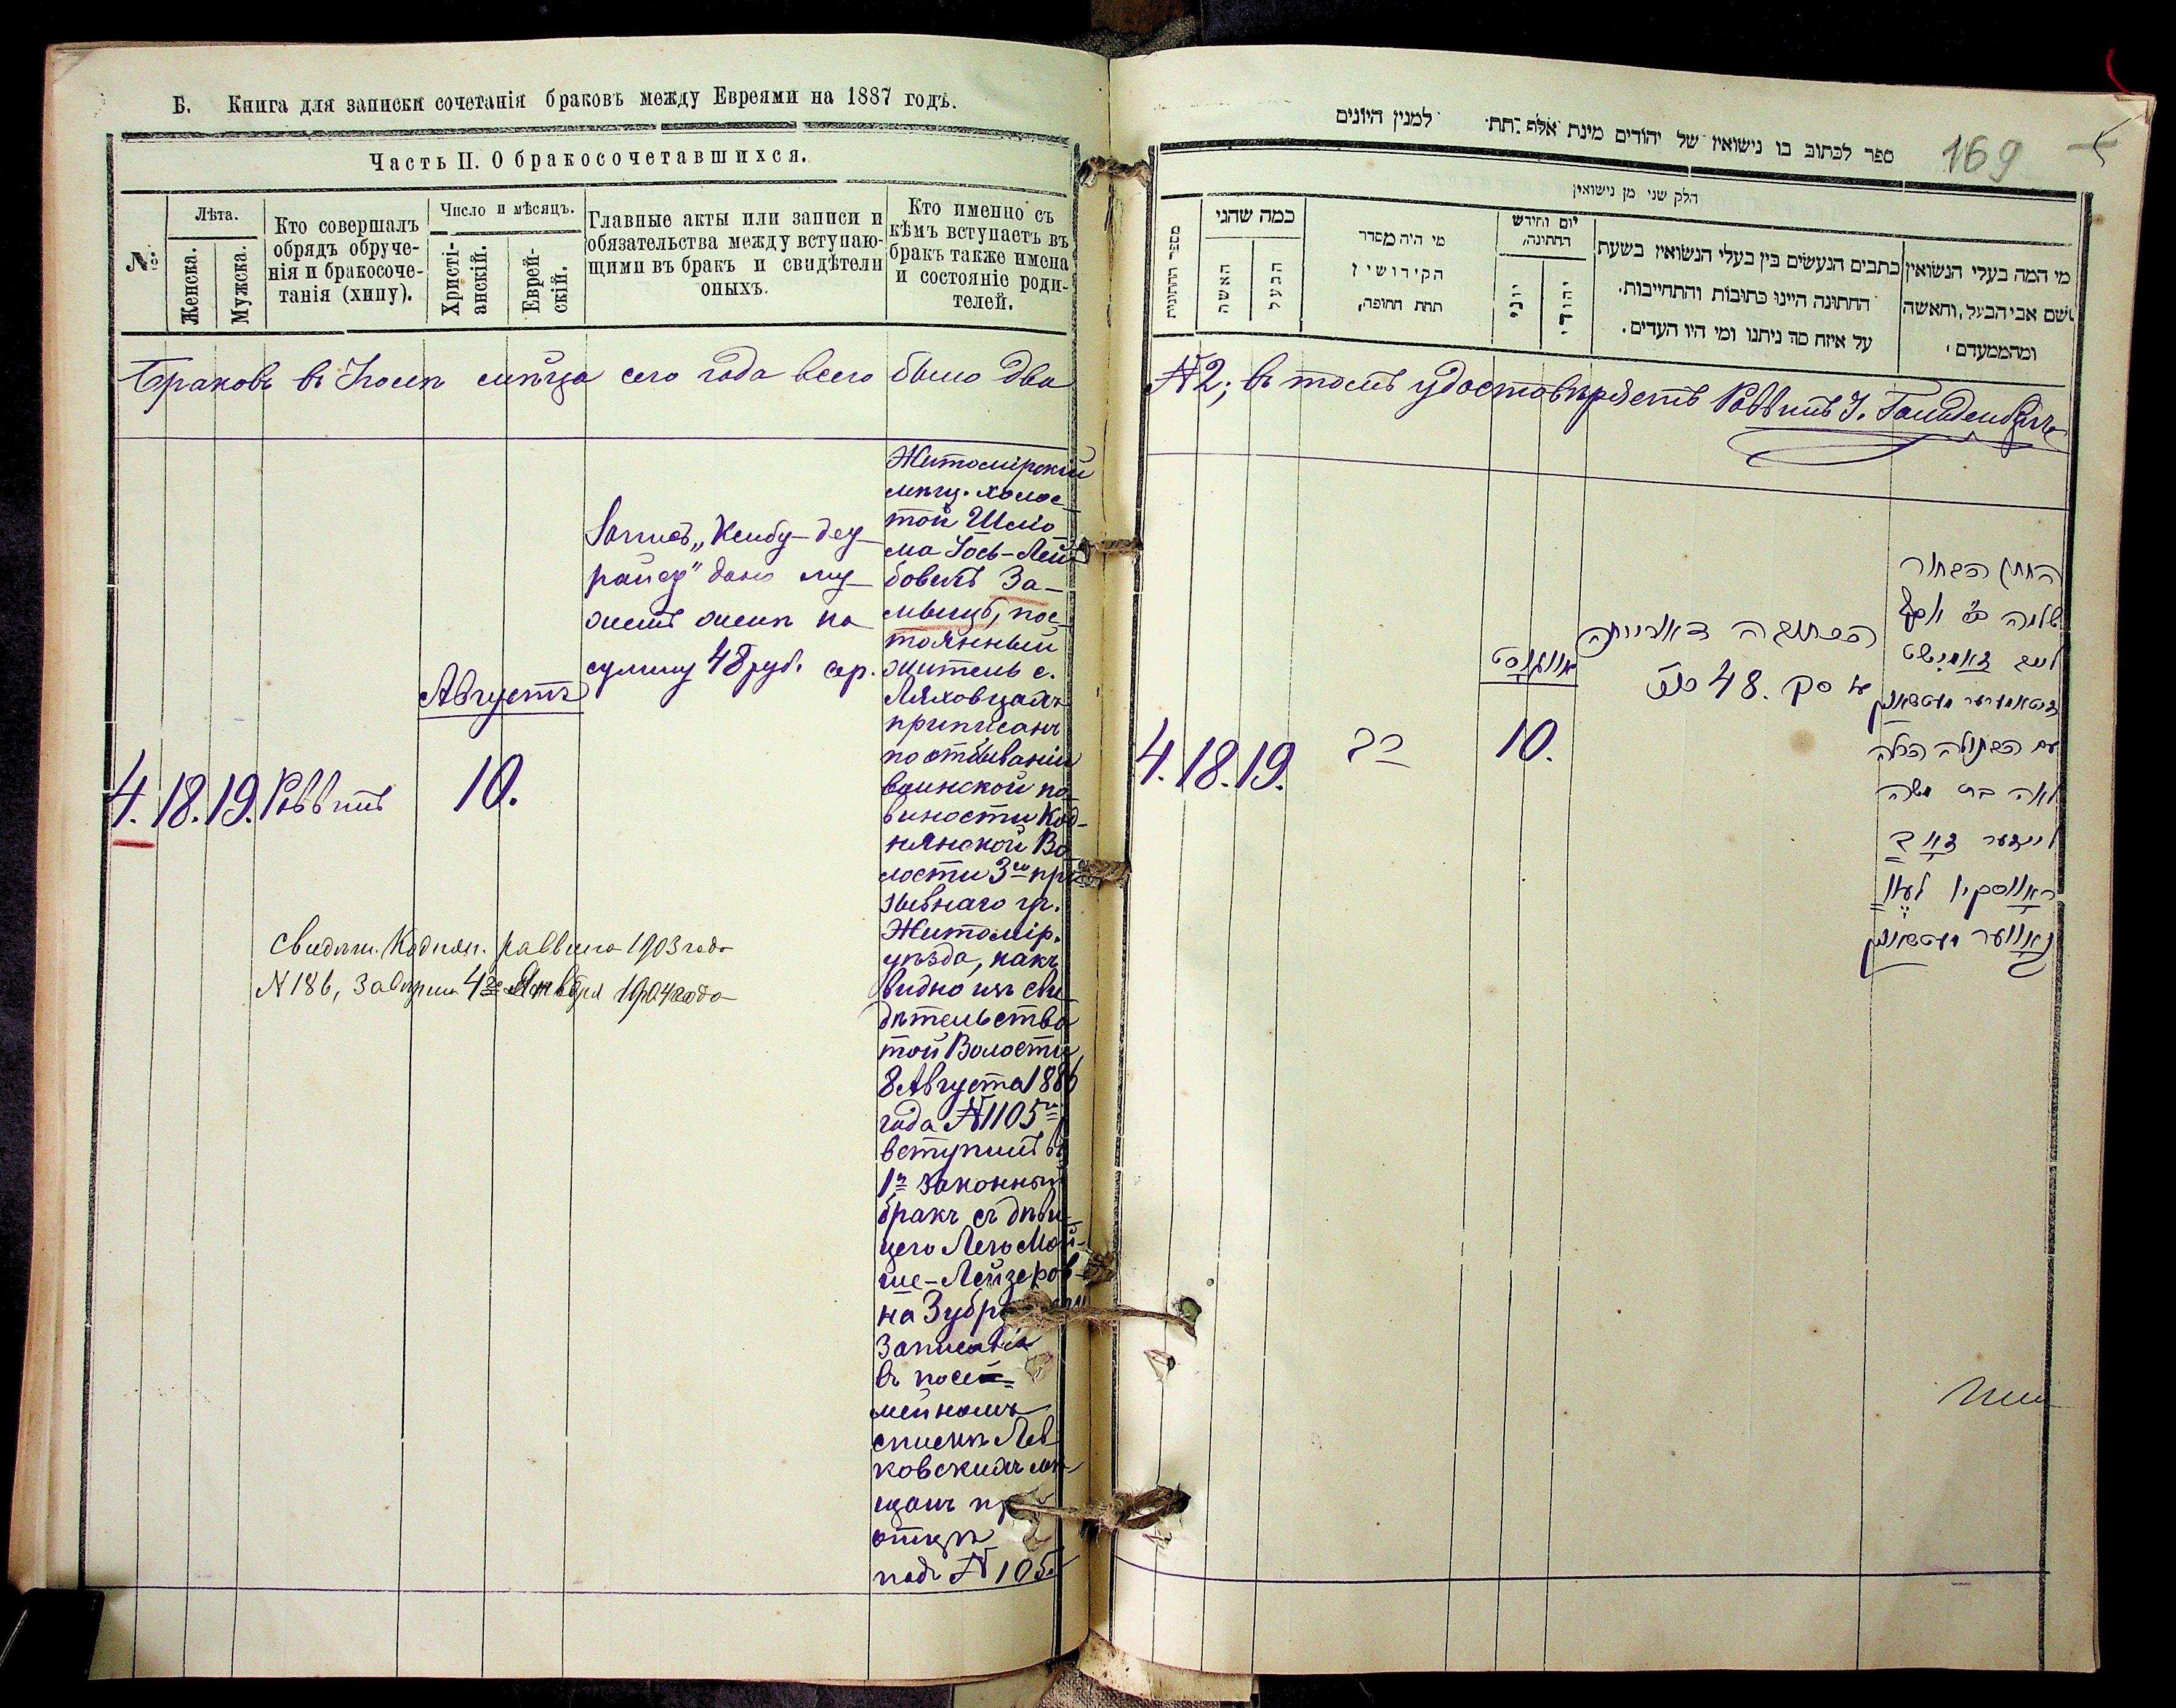 Б. Книга для записки сочетанія браковъ между Евреями на 1887 годъ.
Часть II. О бракосочетавшихся.
№
Лѣта.
Женска.
Мужска.
Кто совершалъ
обрядъ обруче-
нія и бракосоче-
танія (хипу).
Число и мѣсяцъ.
Христі-
анскій.
Еврей-
скій.
Главные акты или записи и
обязательства между вступаю-
щими въ бракъ и свидѣтели
оныхъ.
Кто именно съ
кѣмъ вступаетъ въ
бракъ также имена
и состояніе роди-
телей.
Браковъ въ Іюлѣ мѣсца сего года всего было два
4. 18. 19. Раввинъ
Августъ
10.
Запись „Ксибу-деу-
райсу" дано му-
жемъ женѣ на
сумму 48 руб. сер.
Житомірскій
мѣщ. холос-
той Шлио-
ма Іось-Лей-
бовичъ За-
мысъ, пос-
тоянный
житель с.
Ляховцахъ
приписанъ
по отбыванію
воинской по-
винности Код-
нянской Во-
лости 3го при-
зывнаго уч.
Житомір.
уѣзда, какъ
видно изъ сви-
дѣтельства
той Волости
8 Августа 1886
года №1105
вступилъ въ
1й законный
бракъ съ дѣви-
цею Лею Мой-
ше-Лейзеров-
на
записана
въ посе-
мейномъ
спискѣ Лев-
ковскихъ мѣ-
щанъ
подъ № 105
Свидѣт. Коднян. раввина 1903 года
N 186, 4го Января 1904 года
ספר לכתוב בו נישואין של יהודים מינת אלף תת למנין היונים
169
חלק שני מן נישואין
מספר החתונות
כמה שהגי
האשה
הבעל
מי היה מסדר
הקידושין
תחת החופה,
יום וחודש
החתונה,
יוני
יהודי
כתבים הנעשים בין בעלי הנשואין בשעת
החתונה היינו כתובות והתחייבות.
על איזה סך ניתנו ומי היו העדים.
מי המה בעלי הנשואין
ושם אבי הבעל, והאשה
ומהמעמדם
№2; въ томъ удостовѣряетъ Раввинъ І.
4. 18. 19.
רב
אווגוסט
10.
הכתובה דאורייתה
על סך 48 רוב
החתן הבחור
שלומה יוסף
לייב
זיטאמירער מעשצאנין
עם הבתולה הכלה
לאה בת משה
לייזער
מעשצאנין